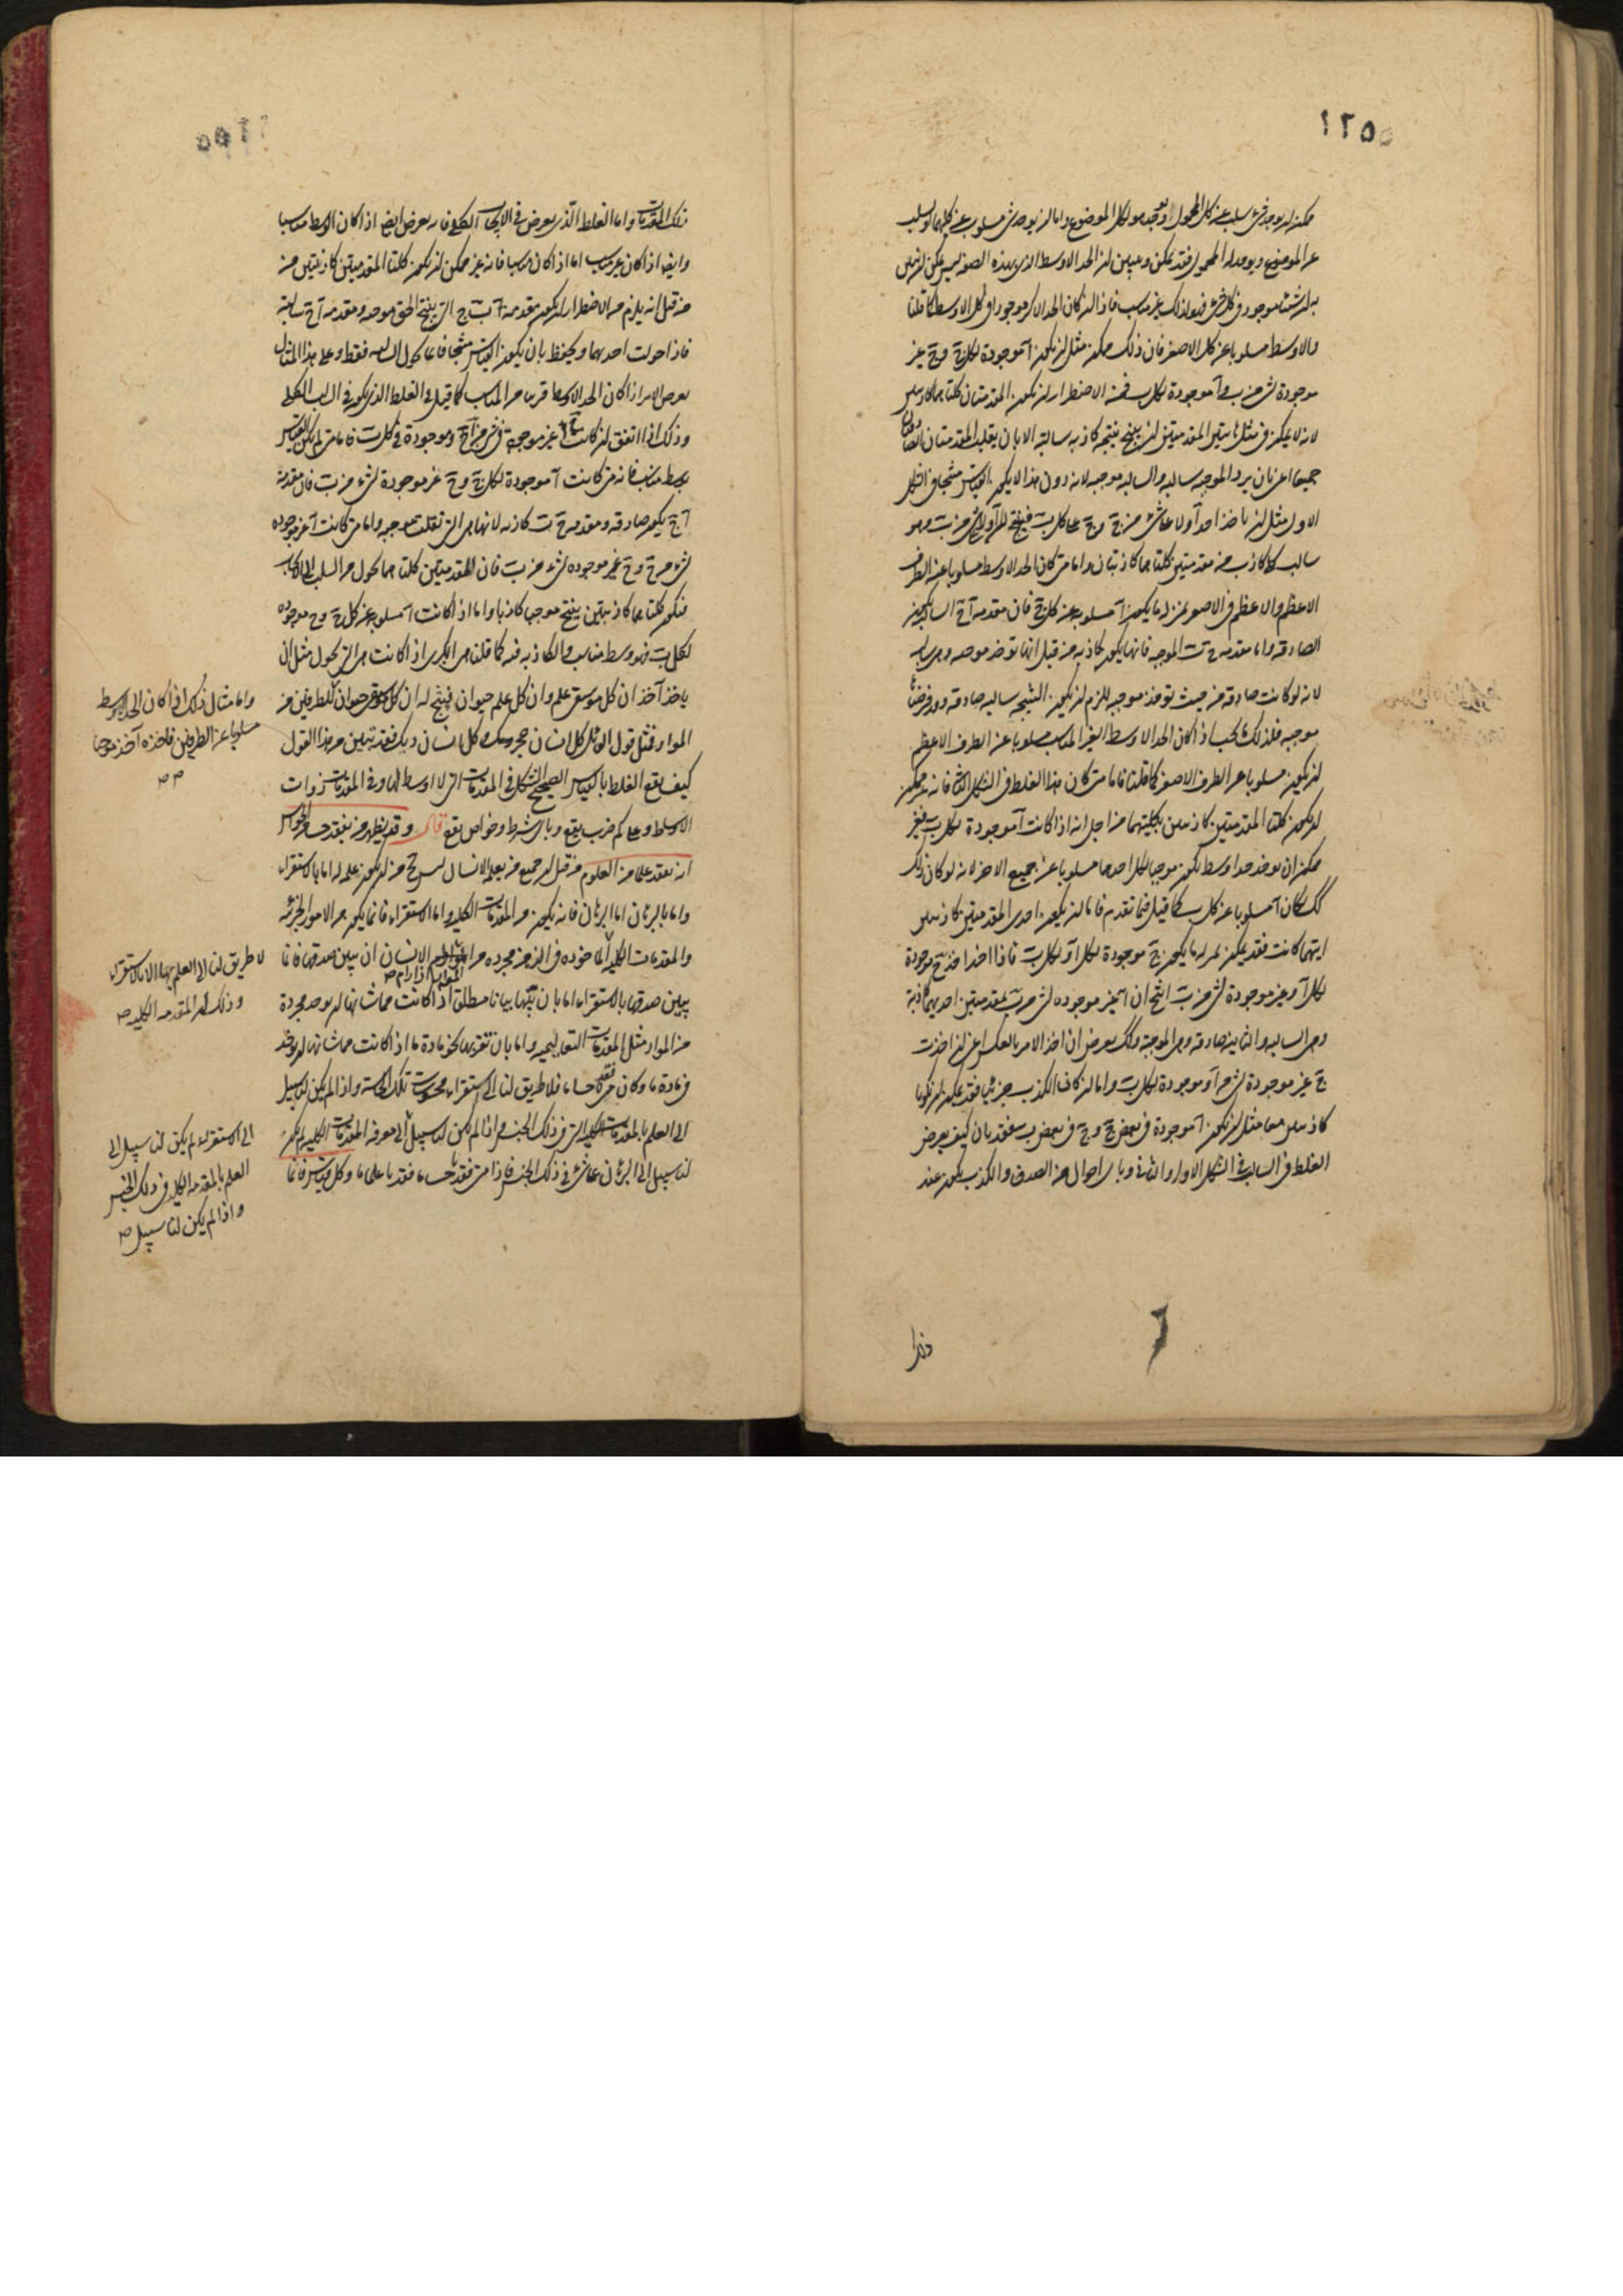 ١٢٥
ممكن ان يوجد شيء يسلب عن كل المحمول ويوجد هو لكل الموضوع واما ان يوجد شيء مسلوب عن كليهما او يسلب
عن الموضوع ويوجد له المحمول فقد يمكن ويبين ان الحد الاوسط الذي بهذه الصفة ليس يمكن ان يبين
به ان شيئا موجود في كل شيء فهو لذلك غير مناسب فاذا ان كان الحد الاكبر موجودا في كل الاوسط كما قلنا
والاوسط مسلوبا عن كل الاصغر فان ذلك ممكن مثل ان يكون آ موجودة لكل ج وج غير
موجودة لشيء من ب وآ موجودة لكل ب فمن الاضطرار ان يكون المقدمتان كلتاهما
لانه لا يمكن في مثل هاتين المقدمتين ان ينتج نتيجة كاذبة سالبة الا بان يقلب المقدمتان
جميعا اعني بان يرد الموجبة سالبة والسالبة موجبة لانه دون هذا لا يكون القياس منتجا في الشكل
الاول مثل ان ياخذ احد آ ولا على شيء من ج وج على كل ب فينتج له آ ولا شيء من ب وهو
سالب كلي كاذب من مقدمتين كلتاهما كاذبتان واما متى كان الحد الاوسط مسلوبا عن الطرف
الاعظم والاعظم في الاصغر بمنزلة ما يكون آ مسلوبة عن كل ج فان مقدمة آ ج السالبة يكون
الصادقة واما مقدمة ج ب الموجبة فانها يكون كاذبة من قبل انها توخذ موجبة وهي سالبة
لانه لو كانت صادقة من حيث توخذ موجبة للزم ان يكون النتيجة سالبة صادقة وقد فرضناها
موجبة فلذلك يجب اذ كان الحد الاوسط الغير المناسب مسلوبا عن الطرف الاعظم
ان يكون مسلوبا عن الطرف الاصغر كما قلنا فاما متى كان هذا الغلط في الشكل الثاني فانه غير ممكن
ان يكون كلتا المقدمتين كاذبتين بكليتهما من اجل انه اذا كانت آ موجودة لكل ب فغير
ممكن ان يوخذ حد اوسط يكون موجبا لكل احدهما مسلوبا عن جميع الاخر لانه لو كان ذلك
كك لكان آ مسلوبا عن كل ب كما قيل فيما تقدم فاما ان يكون احدى المقدمتين كاذبتين
ايتهما كانت فقد يمكن بمنزلة ما يكون ج موجودة لكل آ ولكل ب فاذا اخذ احد ج موجودة
لكل آ وغير موجودة لشيء من ب انتج ان آ غير موجودة لشيء من ب بمقدمتين احديهما كاذبة
وهي السالبة والثانية صادقة وهي الموجبة وكك يعرض ان اخذ الامر بالعكس اعني ان اخذت
ج غير موجودة لشيء من آ وموجودة لكل ب واما ان كان الكذب جزئيا فقد يمكن ان يكونا
كاذبتين معا مثل ان يكون آ موجودة في بعض ج وج في بعض ب فقد بان كيف يعرض
الغلط في السالبة في الشكل الاول والثاني وباي احوال من الصدق والكذب يكون عند
تلك المقدمات واما الغلط الذي يعرض في الايجاب الكلي فانه يعرض ايضا اذا كان الوسط مناسبا
وايضا اذا كان غير مناسب اما اذا كان مناسبا فانه غير ممكن ان يكون كلتا المقدمتين كاذبتين من
من قبل انه يلزم من الاضطرار ان يكون مقدمة ج ب التي ينتج الحق موجبة ومقدمة آ ج سالبة
فاذا حولت احديهما ويحفظ بان يكون القياس منتجا فانما يحول السالبة فقط وعلى هذا المثال
يعرض الامر اذا كان الحد الاوسط قريبا من المناسب كما قيل في الغلط الذي يكون في السالب الكلي
وذلك اذا اتفق ان كانت ج غير موجبة في شيء من آ وموجودة في كل ب فاما متى لم يكن القياس
بوسط مناسب فانه متى كانت آ موجودة لكل ج وج غير موجودة لشيء من ب فان مقدمة
آ ج يكون صادقة ومقدمة ج ب كاذبة لانها هي التي نقلت موجبة واما متى كانت آ غير موجودة
لشيء من ج وج غير موجودة لشيء من ب فان المقدمتين كلتاهما يحول من السلب الى الايجاب
فيكون كلتاهما كاذبتين ينتج موجبا كاذبا واما اذا كانت آ مسلوبة عن كل ج وج موجودة
لكل ب فهو وسط مناسب والكاذبة فيه كما قلنا هي الكبرى اذ كانت هي التي يحول مثل ان
ياخذ آخذ ان كل موسيقى علم وان كل علم حيوان فينتج له ان كل موسيقى حيوان للطرفين من
المواد فمثل قول القائل كل انسان حجر وكل انسان ديك فقد تبين من هذا القول
كيف يقع الغلط بالقياس الصحيح الشكل في المقدمات التي لا اوسط لها وفي المقدمات ذوات
الاوسط وعلى كم ضرب يقع وباي شرط وخواص يقع قال وقد يظهر من يفقد حسا من الحواس
انه يفقد علما من العلوم من قبل ان جميع من يعلم الانسان ليس يخ من ان يكون علمه له اما بالاستقراء
واما بالبرهان اما البرهان فانه يكون من المقدمات الكلية واما الاستقراء فانما يكون من الامور الجزئية
والمقدمات الكلية الماخوذة في الذهن مجردة من المواد الانسان ان يبين صدقها فانما
يبين صدقها بالاستقراء اما بان يبينها بيانا مطلقا اذ كانت مما شانها ان يوجد مجردة
من المواد مثل المقدمات التعاليمية واما بان تقربها نحو مادة ما اذ كانت مما شانها ان يوجد
في مادة ما وكان متى فقد حاسة ما فلا طريق لنا الى استقراء محسوسات تلك الحاسة واذا لم يكن لنا سبيل
الى العلم بالمقدمات الكلية التي في ذلك الجنس واذا لم يكن لنا سبيل الى معرفة المقدمات الكلية لم يكن
لنا سبيل الى البرهان على شيء في ذلك الجنس فاذا متى فقدنا حسا ما فقدنا علما ما وكل قياس فانما
واما مثال ذلك اذا كان الحد الاوسط
مسلوبا عن الطرفين فاخذه آخذ موجبا
لا طريق لنا الى العلم بها الا بالاستقراء
وذلك ان المقدمة الكلية
الى الاستقراء لم يكن لنا سبيل الى
العلم بالمقدمة الكلية في ذلك الجنس
واذا لم يكن لنا سبيل